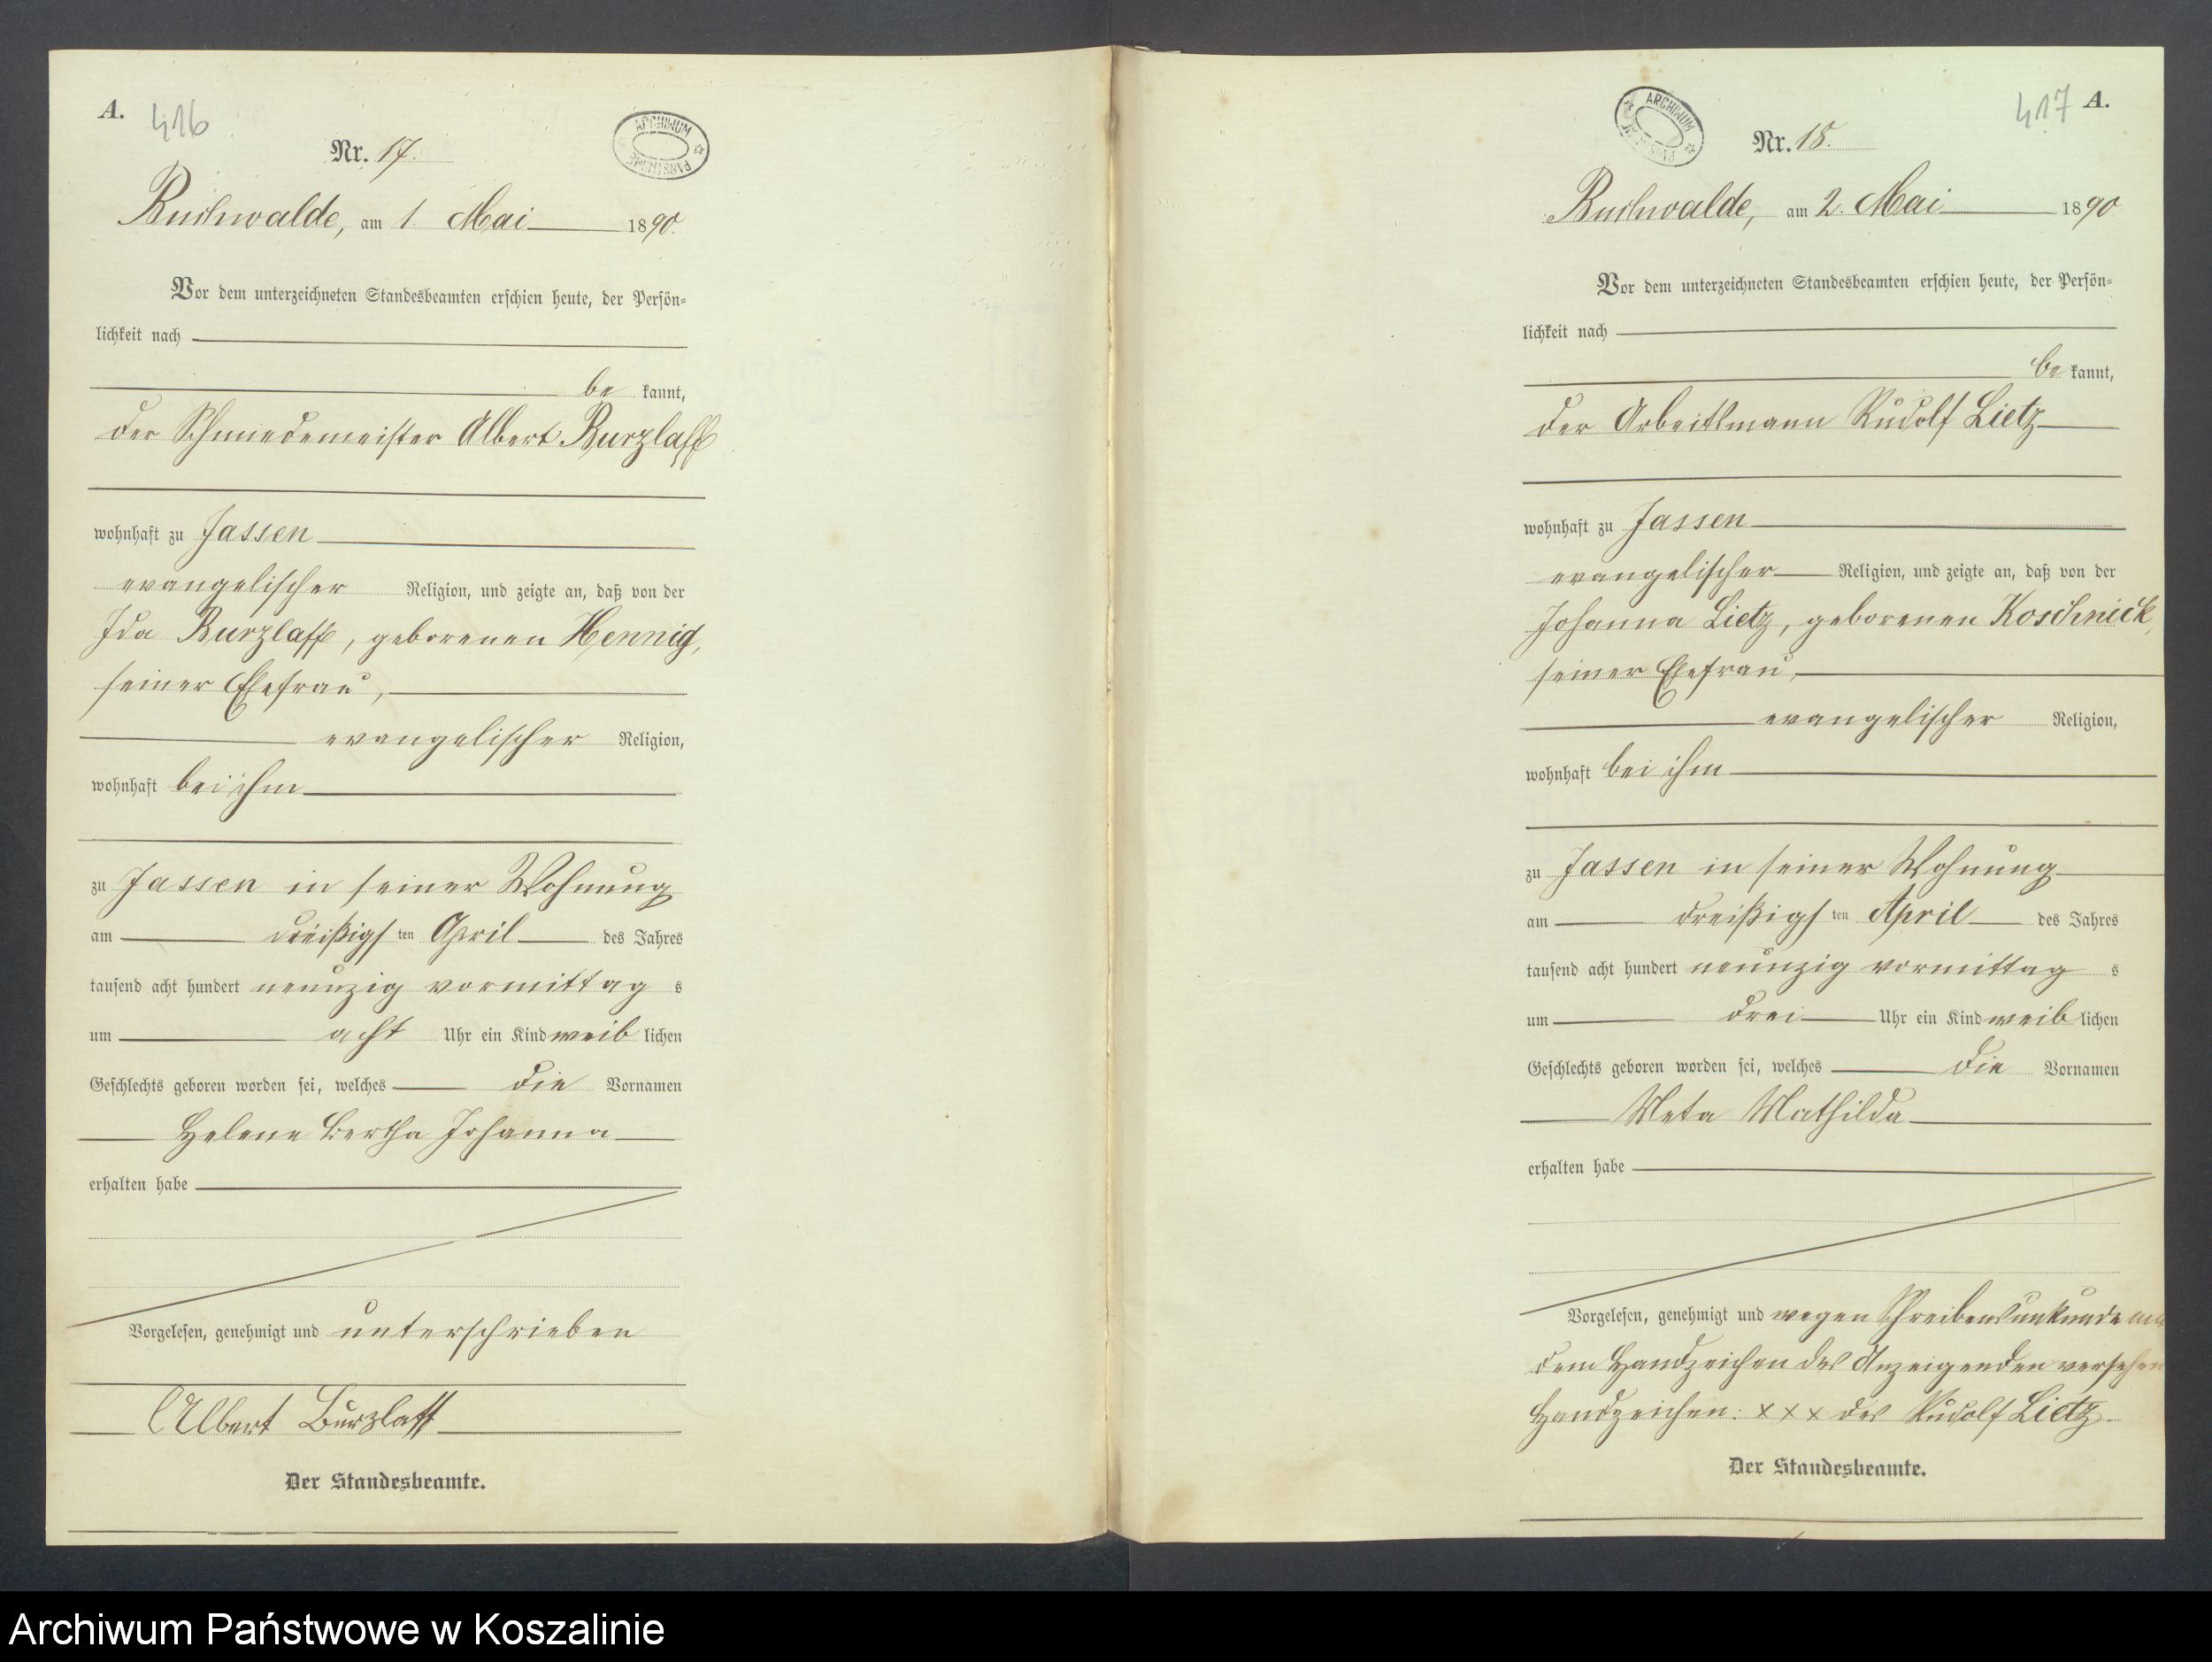 A.
416
ARCHIWUM PAŃSTWOWE
Nr. 17.
Buchwalde, am 1. Mai 1890.
Vor dem unterzeichneten Standesbeamten erschien heute, der Persön-
lichkeit nach
be kannt,
der Schmiedemeister Albert Burzlaff
wohnhaft zu Jassen
evangelischer Religion, und zeigte an, daß von der
Ida Burzlaff, geborenen Hennig,
seiner Ehefrau,
evangelischer Religion,
wohnhaft bei ihm
zu Jassen in seiner Wohnung
am dreißigsten April des Jahres
tausend acht hundert neunzig vormittag s
um acht Uhr ein Kind weib lichen
Geschlechts geboren worden sei, welches die Vornamen
Helene Bertha Johanna
erhalten habe
Vorgelesen, genehmigt und unterschrieben
Albert Burzlaff
Der Standesbeamte.
417 A.
ARCHIWUM PAŃSTWOWE
Nr. 18.
Buchwalde, am 2. Mai 1890
Vor dem unterzeichneten Standesbeamten erschien heute, der Persön-
lichkeit nach
be kannt,
der Arbeitsmann Rudolf Lietz
wohnhaft zu Jassen
evangelischer Religion, und zeigte an, daß von der
Johanna Lietz, geborenen Koschnick,
seiner Ehefrau,
evangelischer Religion,
wohnhaft bei ihm
zu Jassen in seiner Wohnung
am dreißigsten April des Jahres
tausend acht hundert neunzig vormittag s
um drei Uhr ein Kind weib lichen
Geschlechts geboren worden sei, welches die Vornamen
Meta Mathilda
erhalten habe
Vorgelesen, genehmigt und wegen Schreibensunkunde
dem Handzeichen des Anzeigenden versehen
Handzeichen: xxx des Rudolf Lietz.
Der Standesbeamte.
Archiwum Państwowe w Koszalinie